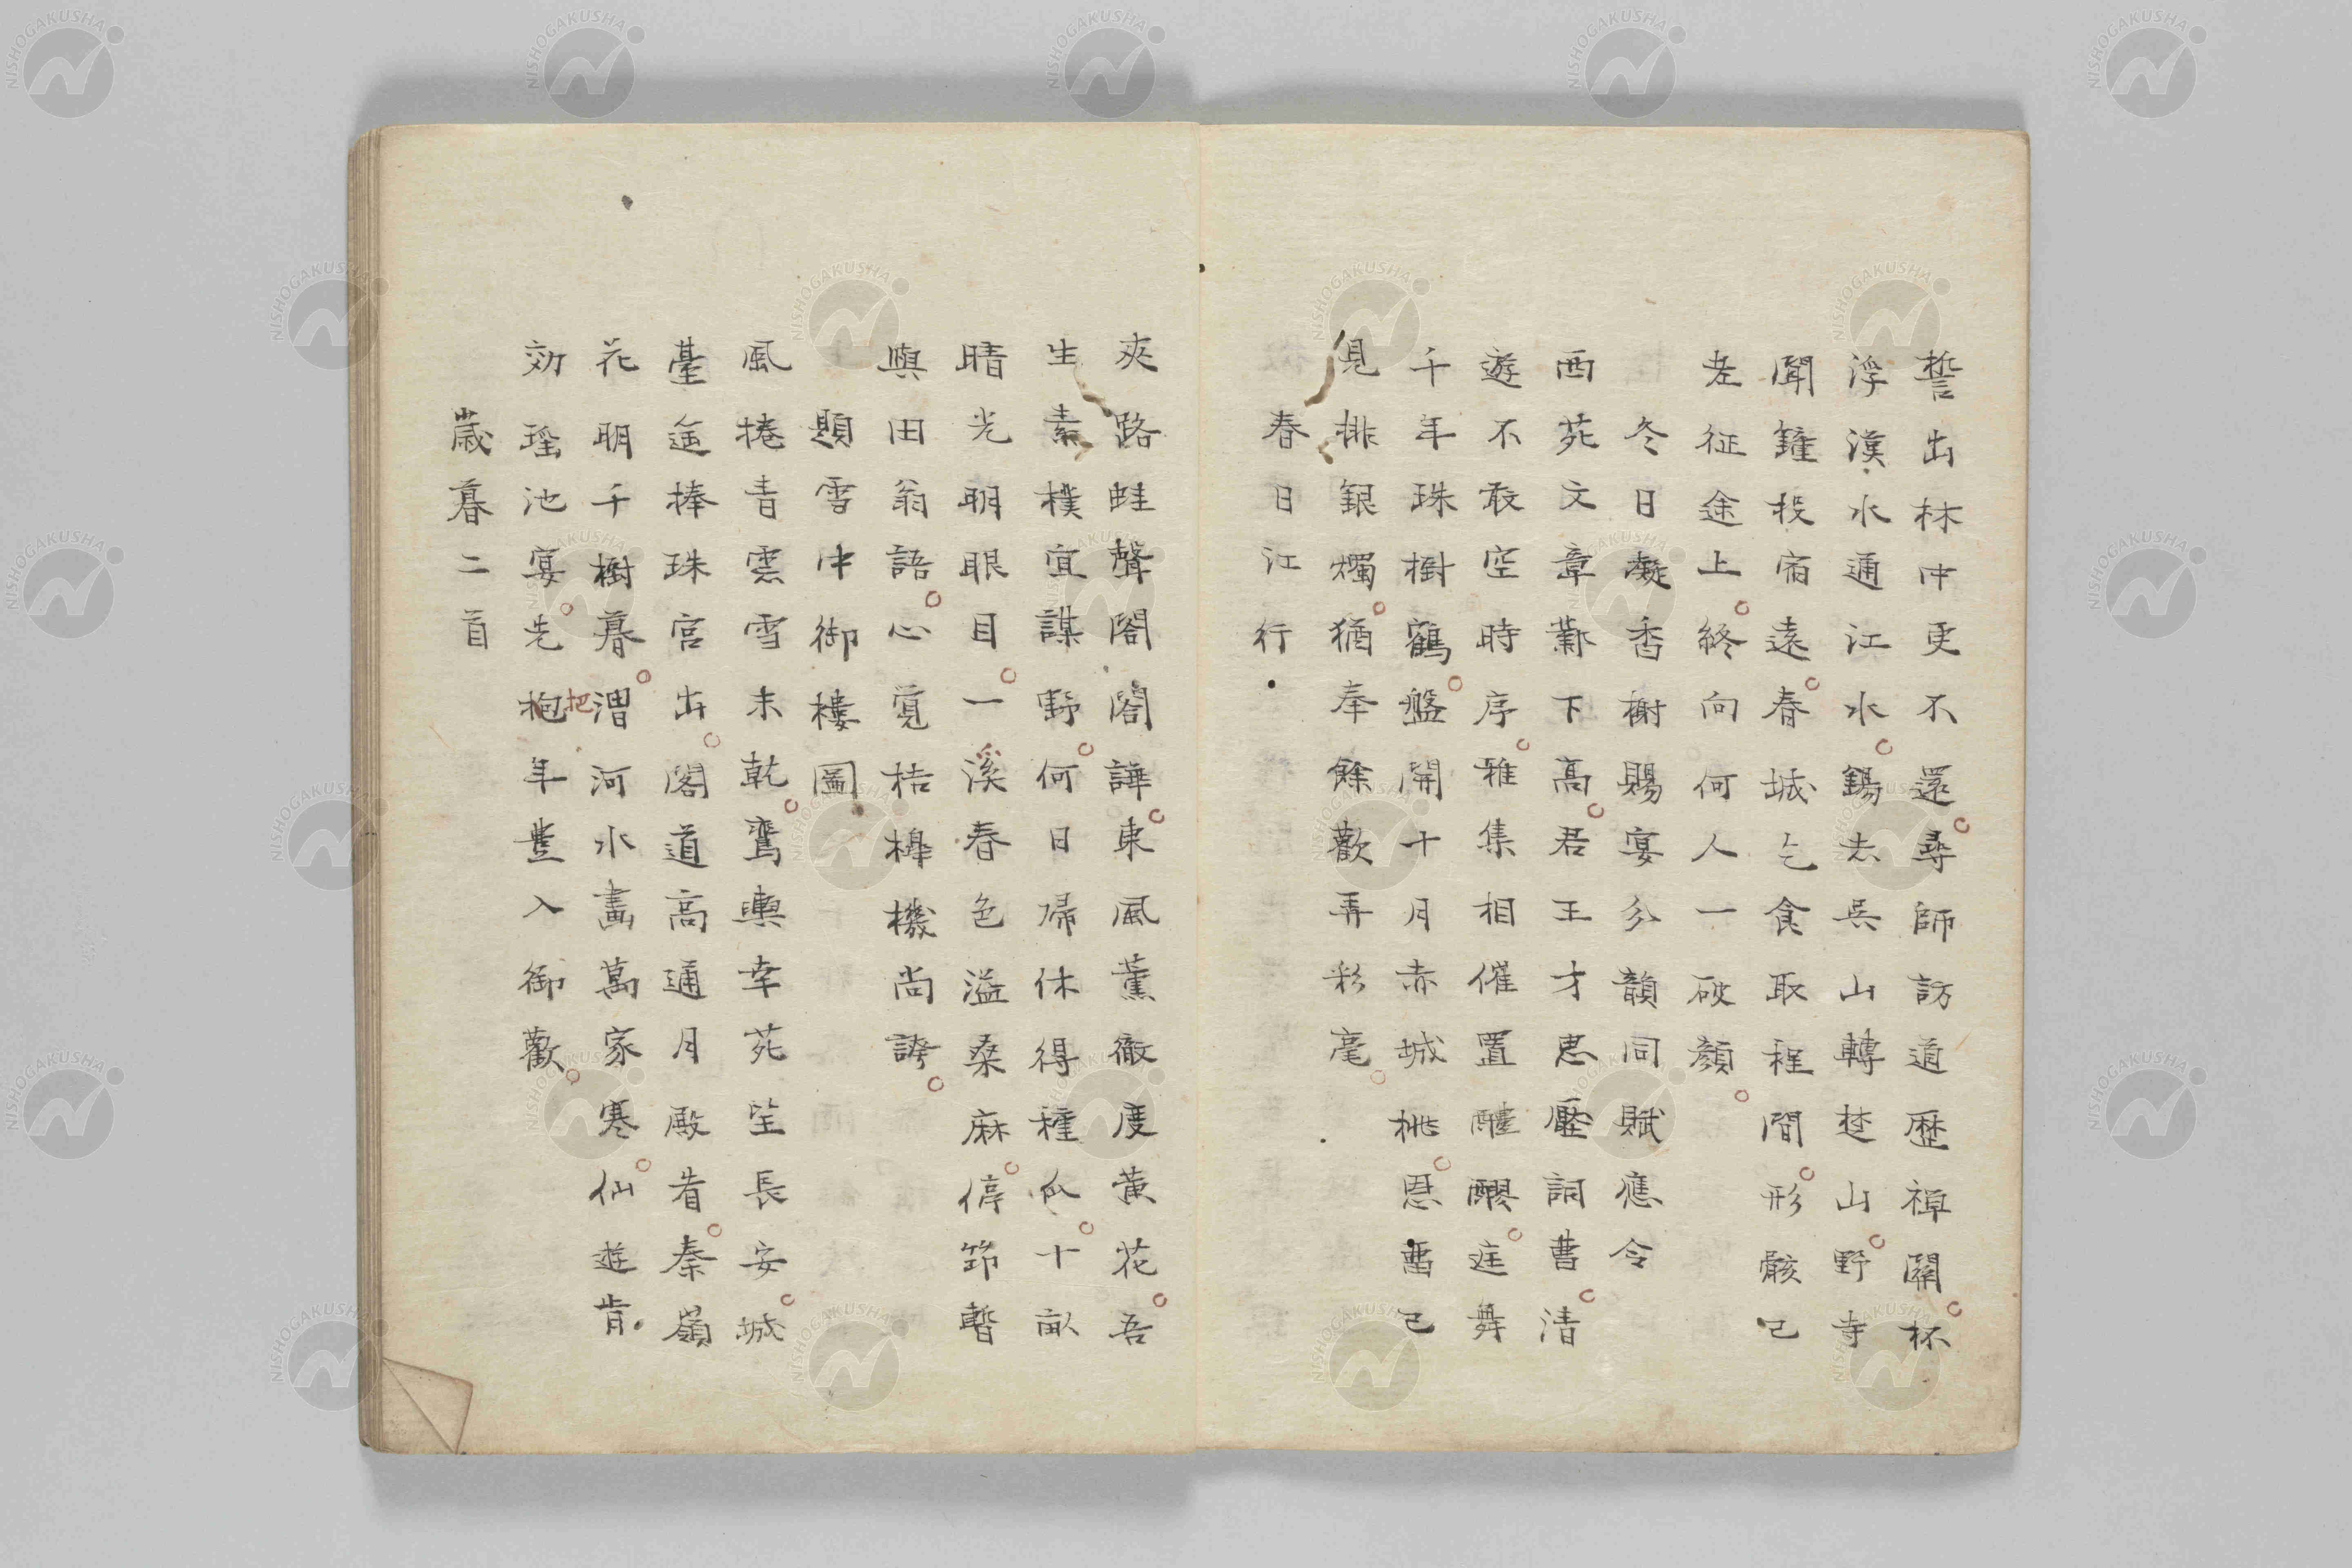 誓出林中更不還尋師訪道歷禪關杯
浮漢水通江水錫志吳山轉楚山野寺
聞鐘投宿遠春城乞食取程間形骸已
老征途上終向何人一破顏
冬日凝香榭賜宴分韻同賦應令
西苑文章鄴下高君王才思壓詞曹清
遊不敢空時序雅集相催置醴醪莚舞
千年珠樹鶴盤開十月赤城桃恩畱已
見排銀燭猶奉餘歡弄彩毫
春日江行
夾路蛙聲閤閤譁東風薰徹度黃花吾
生素樸宜謀野何日歸休得種瓜十畝
晴光明眼目一溪春色溢桑麻停節暫
與田翁語心覚桔槹機尚誇
題雪中御樓圖
風捲青雲雪未乾鸞輿幸苑望長安城
臺迤捧珠宮出閣道高通月殿看秦嶺
花明千樹暮漕河水畵萬家寒仙遊肯
効瑶池宴先抱年豊入御歡
把
歲暮二首
NISHOGAKUSHA